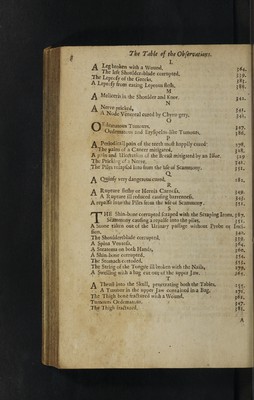 The Table of the Observations.
L
A Leg broken with a Wound,
The left Shoulder-blade corrupted,
The Leprosy of the Greeks,
A Leprosy from eating Leprous flesh,
M
A Meliceris in the Shoulder and Knee
N
A Nerve pricked, 341.
A Node Venereal cured by Chyrurgery, 341.
O
Oedematous Tumours, 347.
Oedematous and Erysipelas like Tumours, 386.
P
A Periodical pain of the teeth most happily cured 178.
The pains of a Cancer mitigated, 328.
A pain and Ulceration of the breast mitigated by an Issue. 329
The Pricking of a Nerve, 340.
The Piles relapsed into from the use of Scammony. 351.
Q
A Quinsy very dangerous cured, 184.
R
A Rupture fleshy or Hernia Carnosa.
A Rupture ill reduced causing barrenness. 325.
A repulse into the Piles from the use of Scammony. 351.
S
THE Shin-bone corrupted scraped with the Scraping Irons, 367.
Scammony causing a repulse into the piles, 351.
A stone taken out of the Urinary passage without Pyobe by Incision,
The Shoulder-blade corrupted, 359.
A Spina Ventosa, 364.
A Steatoma on both Hands, 366.
A Shin-bone corrupted, 354.
The Stomach extended, 355.
The String of the Tongue ill broken with the Nails, 179.
A Swelling with a bag cut out of the upper Jaw. 262.
T
A Thrust into the Skull, penetrating both the Tables. 155.
A Tumour in the upper Jaw contained in a Bag,
The Thigh bone fractured with a Wound. 362.
Tumours Oedematous, 347.
The Thigh fractured. 381.
A